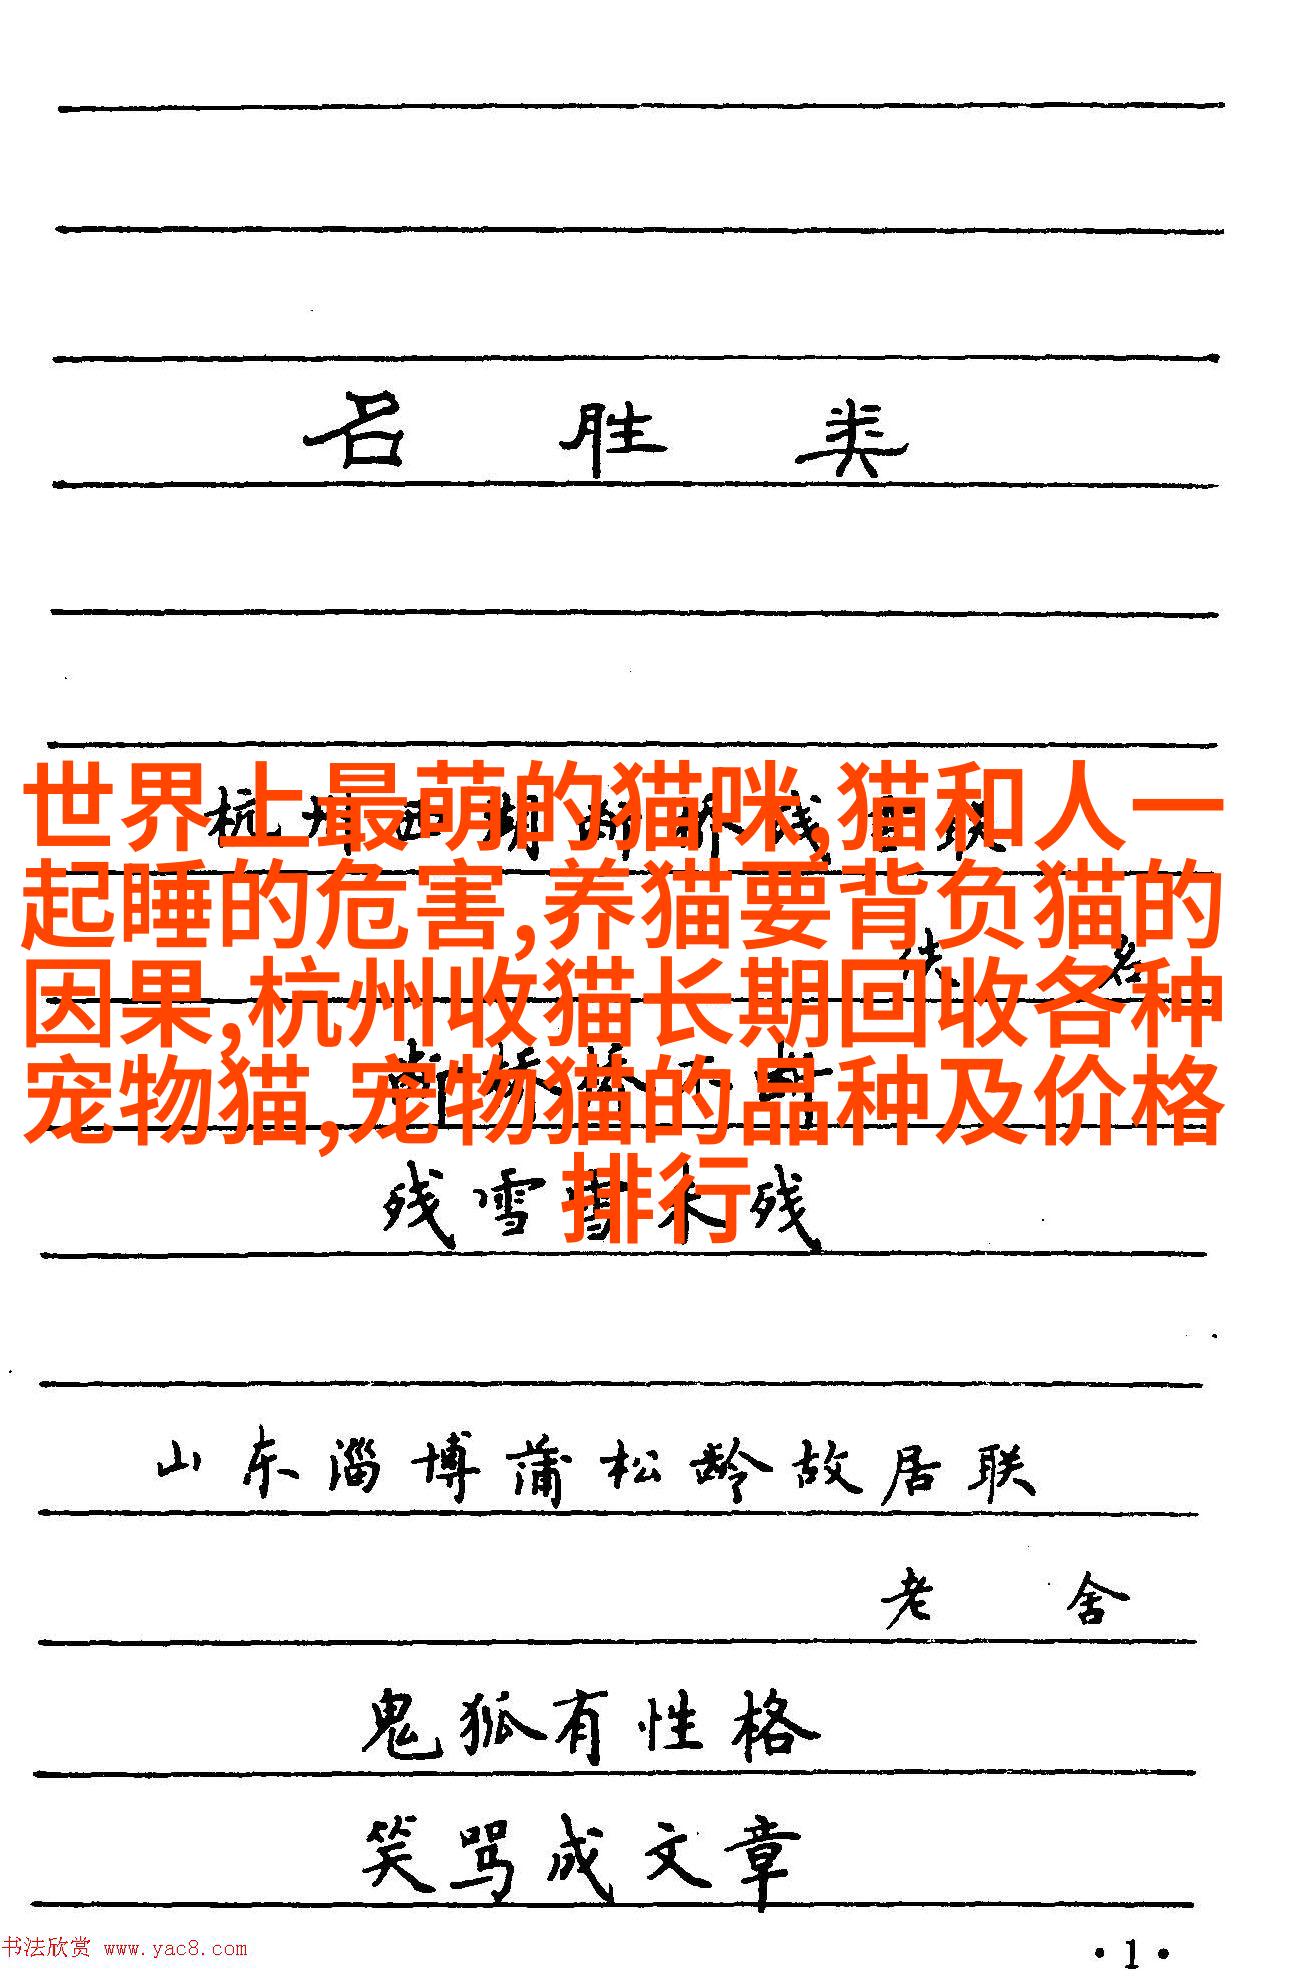 名胜类
杭州西湖断桥残雪联
世界上最萌的猫咪,猫和人一
起睡的危害,养猫要背负猫的
佚名
因果,杭州收猫长期回收各种
断桥桥不断
宠物猫,宠物猫的品种及价格
残雪雪未残
排行
山东淄博蒲松龄故居联
老舍
鬼狐有性格
笑骂成文章
书法欣赏 www.yac8.com
·1·